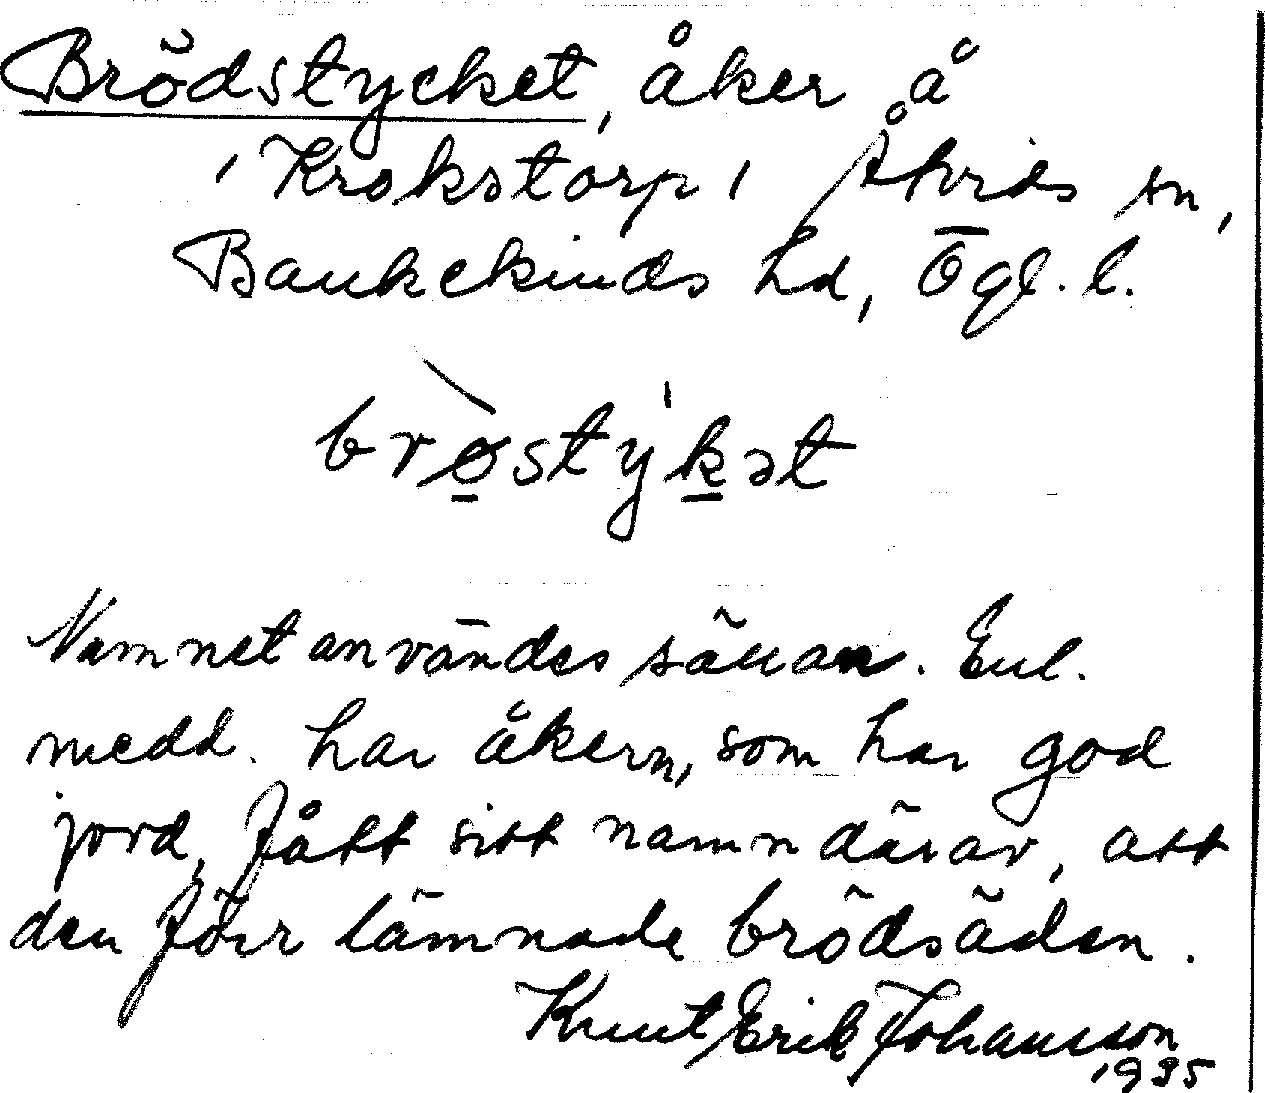 Brödstycket, åker å
Krokstorp i Åtvids sn,
Bankekinds hd, Ögl. l.
brøstykət
Namnet användes sällan. Enl.
medd. har åkern, som har god
jord, fått sitt namn därav, att
den förr lämnade brödsäden.
Knut Erik Johansson
1935